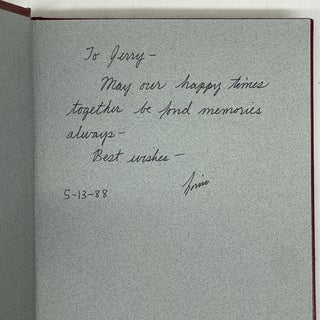 To Jerry-
May our happy times
together be fond memories
always-
Best wishes-
5-13-88